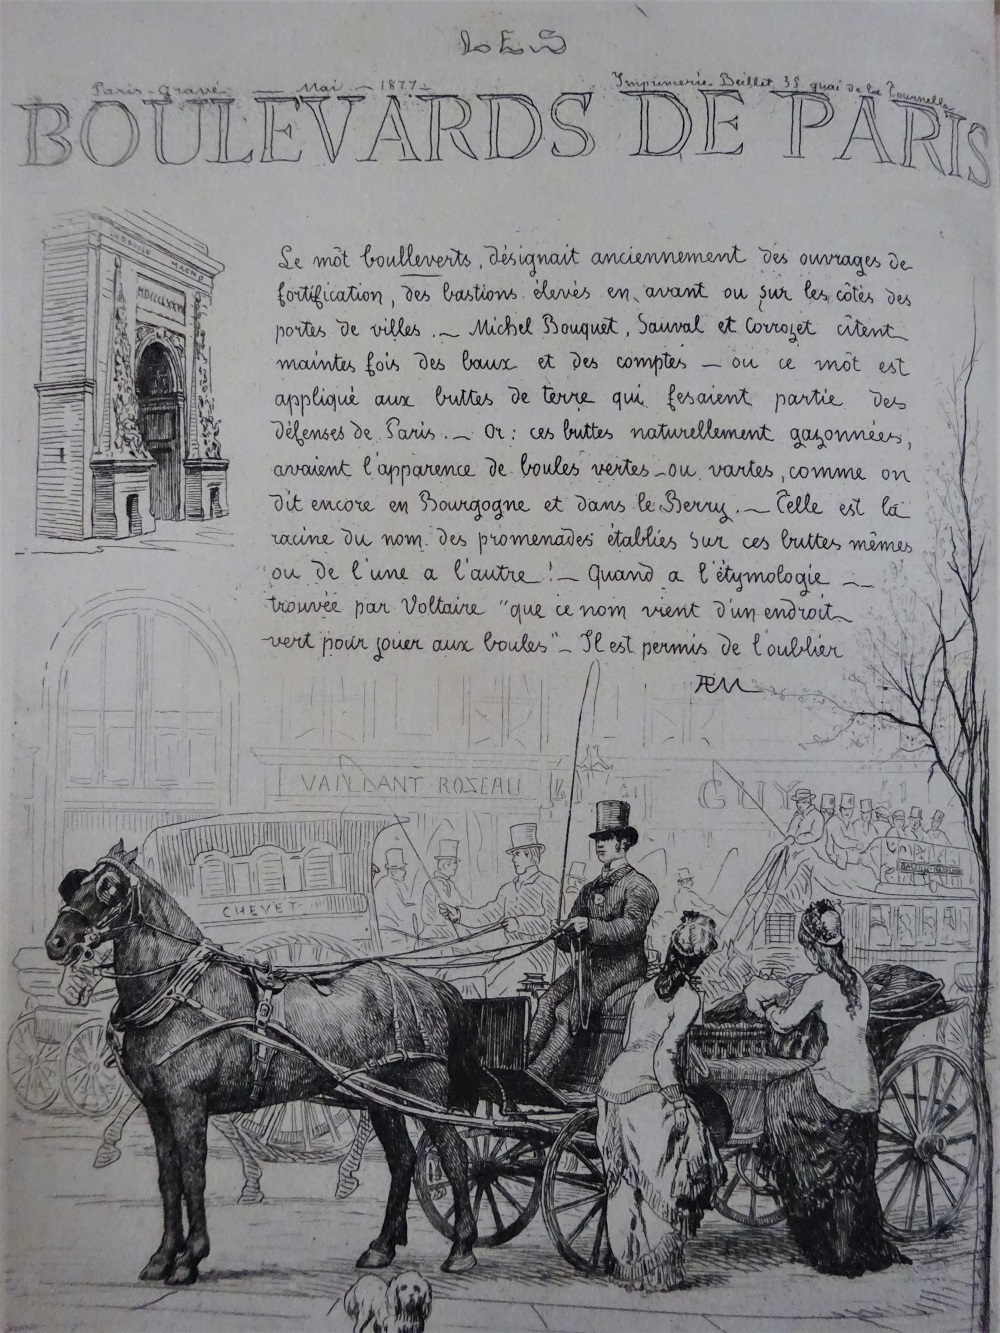 LES
Paris - gravé - Mai - 1877 - Imprimerie. Beillet 35 quai de la Tournelle
BOULEVARDS DE PARIS
LUDOVICO MAGNO
Le môt boulleverts, désignait anciennement des ouvrages de
fortification, des bastions élevés en avant ou sur les côtés des
portes de villes. ~ Michel Bouquet, Sauval et Corrozet citent
maintes fois des baux et des comptes — ou ce môt est
appliqué aux buttes de terre qui fesaient partie des
défenses de Paris. ~ Or: ces buttes naturellement gazonnées,
avaient l'apparence de boules vertes - ou vartes, comme on
dit encore en Bourgogne et dans le Berry. ~ Telle est la
racine du nom des promenades établies sur ces buttes mêmes
ou de l'une a l'autre! ~ Quand a l'étymologie ~
trouvée par Voltaire "que ce nom vient d'un endroit
vert pour jouer aux boules" ~ Il est permis de l'oublier
AEM
VAILLANT ROZEAU
GUY
CHEVET